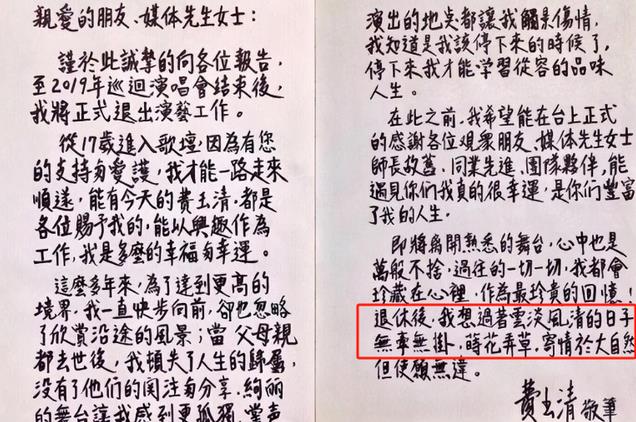 親愛的朋友、媒体先生女士：
謹於此誠摯的向各位報告，
至2019年巡迴演唱會結束後，
我將正式退出演藝工作。
從17歲進入歌壇，因為有您
的支持與愛護，我才能一路走來
順遂，能有今天的費玉清，都是
各位賜予我的，能以興趣作為
工作，我是多麼的幸福與幸運。
這麼多年來，為了達到更高的
境界，我一直快步向前，卻也忽略
了欣賞沿途的風景；當父母親
都去世後，我頓失了人生的歸屬，
沒有了他們的関注與分享，絢麗
的舞台讓我感到更孤獨，掌声
演出的地点都讓我觸景傷情，
我知道是我該停下來的時候了，
停下來我才能学習從容的品味
人生。
在此之前，我希望能在台上正式
的感謝各位观衆朋友、媒体先生女士
師長故舊、同業先進、團隊夥伴，能
遇見你们我真的很幸運，是你们豐富
了我的人生。
即將离開熟悉的舞台，心中也是
萬般不捨，過往的一切一切，我都會
珍藏在心裡，作為最珍貴的回憶！
退休後，我想過著雲淡風清的日子
無牽無掛，時花弄草，寄情於大自然
但使願無違。
費玉清 敬筆